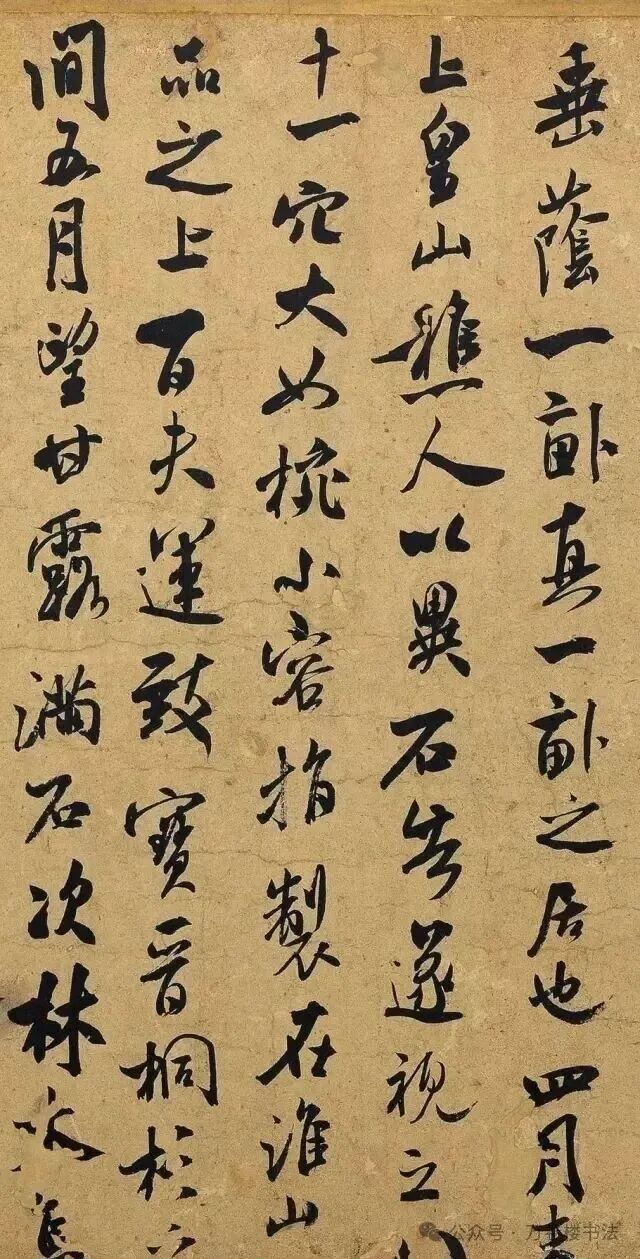 垂蔭一畝真一畝之居也四月
上皇山樵人以異石告遂視之八
十一穴大如椀小容指製在淮山
品之上百夫運致寶晉桐杉之
間五月望甘露滿石次林
公众号